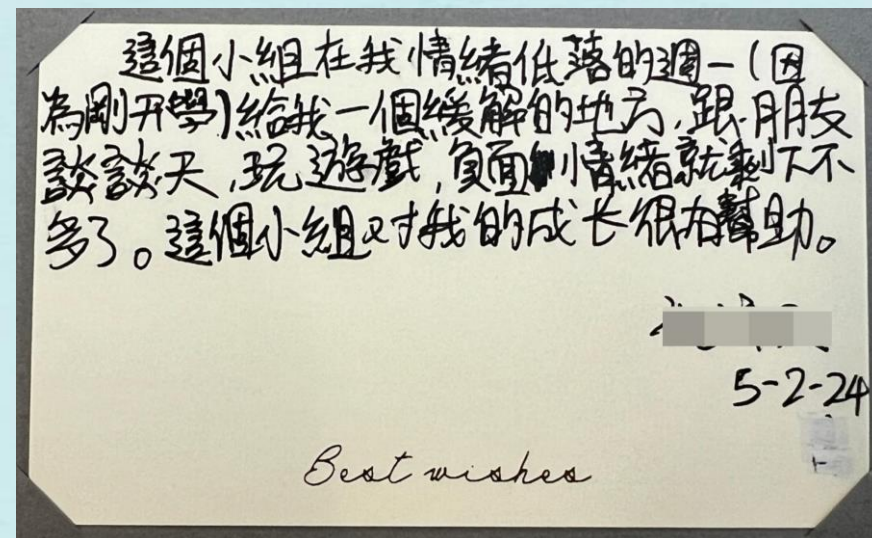 這個小組在我情緒低落的週一(因
為剛开學)給我一個緩解的地方,跟朋友
談談天,玩遊戲,負面情緒就剩下不
多了。這個小組对我的成长很有幫助。
5-2-24
Best wishes